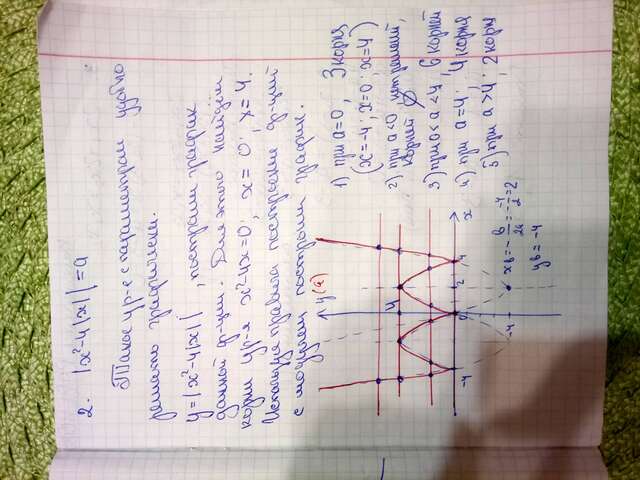 2. |x²-4|x||=a
Такое ур-е с параметром удобно
решать графически.
y=|x²-4|x||, построим график
данной ф-ции. Для этого найдём
корни ур-я x²-4x=0; x=0; x=4.
Используя правила построения ф-ций
с модулем построим график.
y(a)
4
-4
0
2
4
x
-4
xв=-в/2a=-(-4)/2=2
yв=-4
1) при a=0, 3 корня
(x=-4; x=0; x=4)
2) при a<0 нет решений,
корней ∅
3) при 0<a<4, 6 корней
4) при a=4; 4 корня
5) при a>4; 2 корня